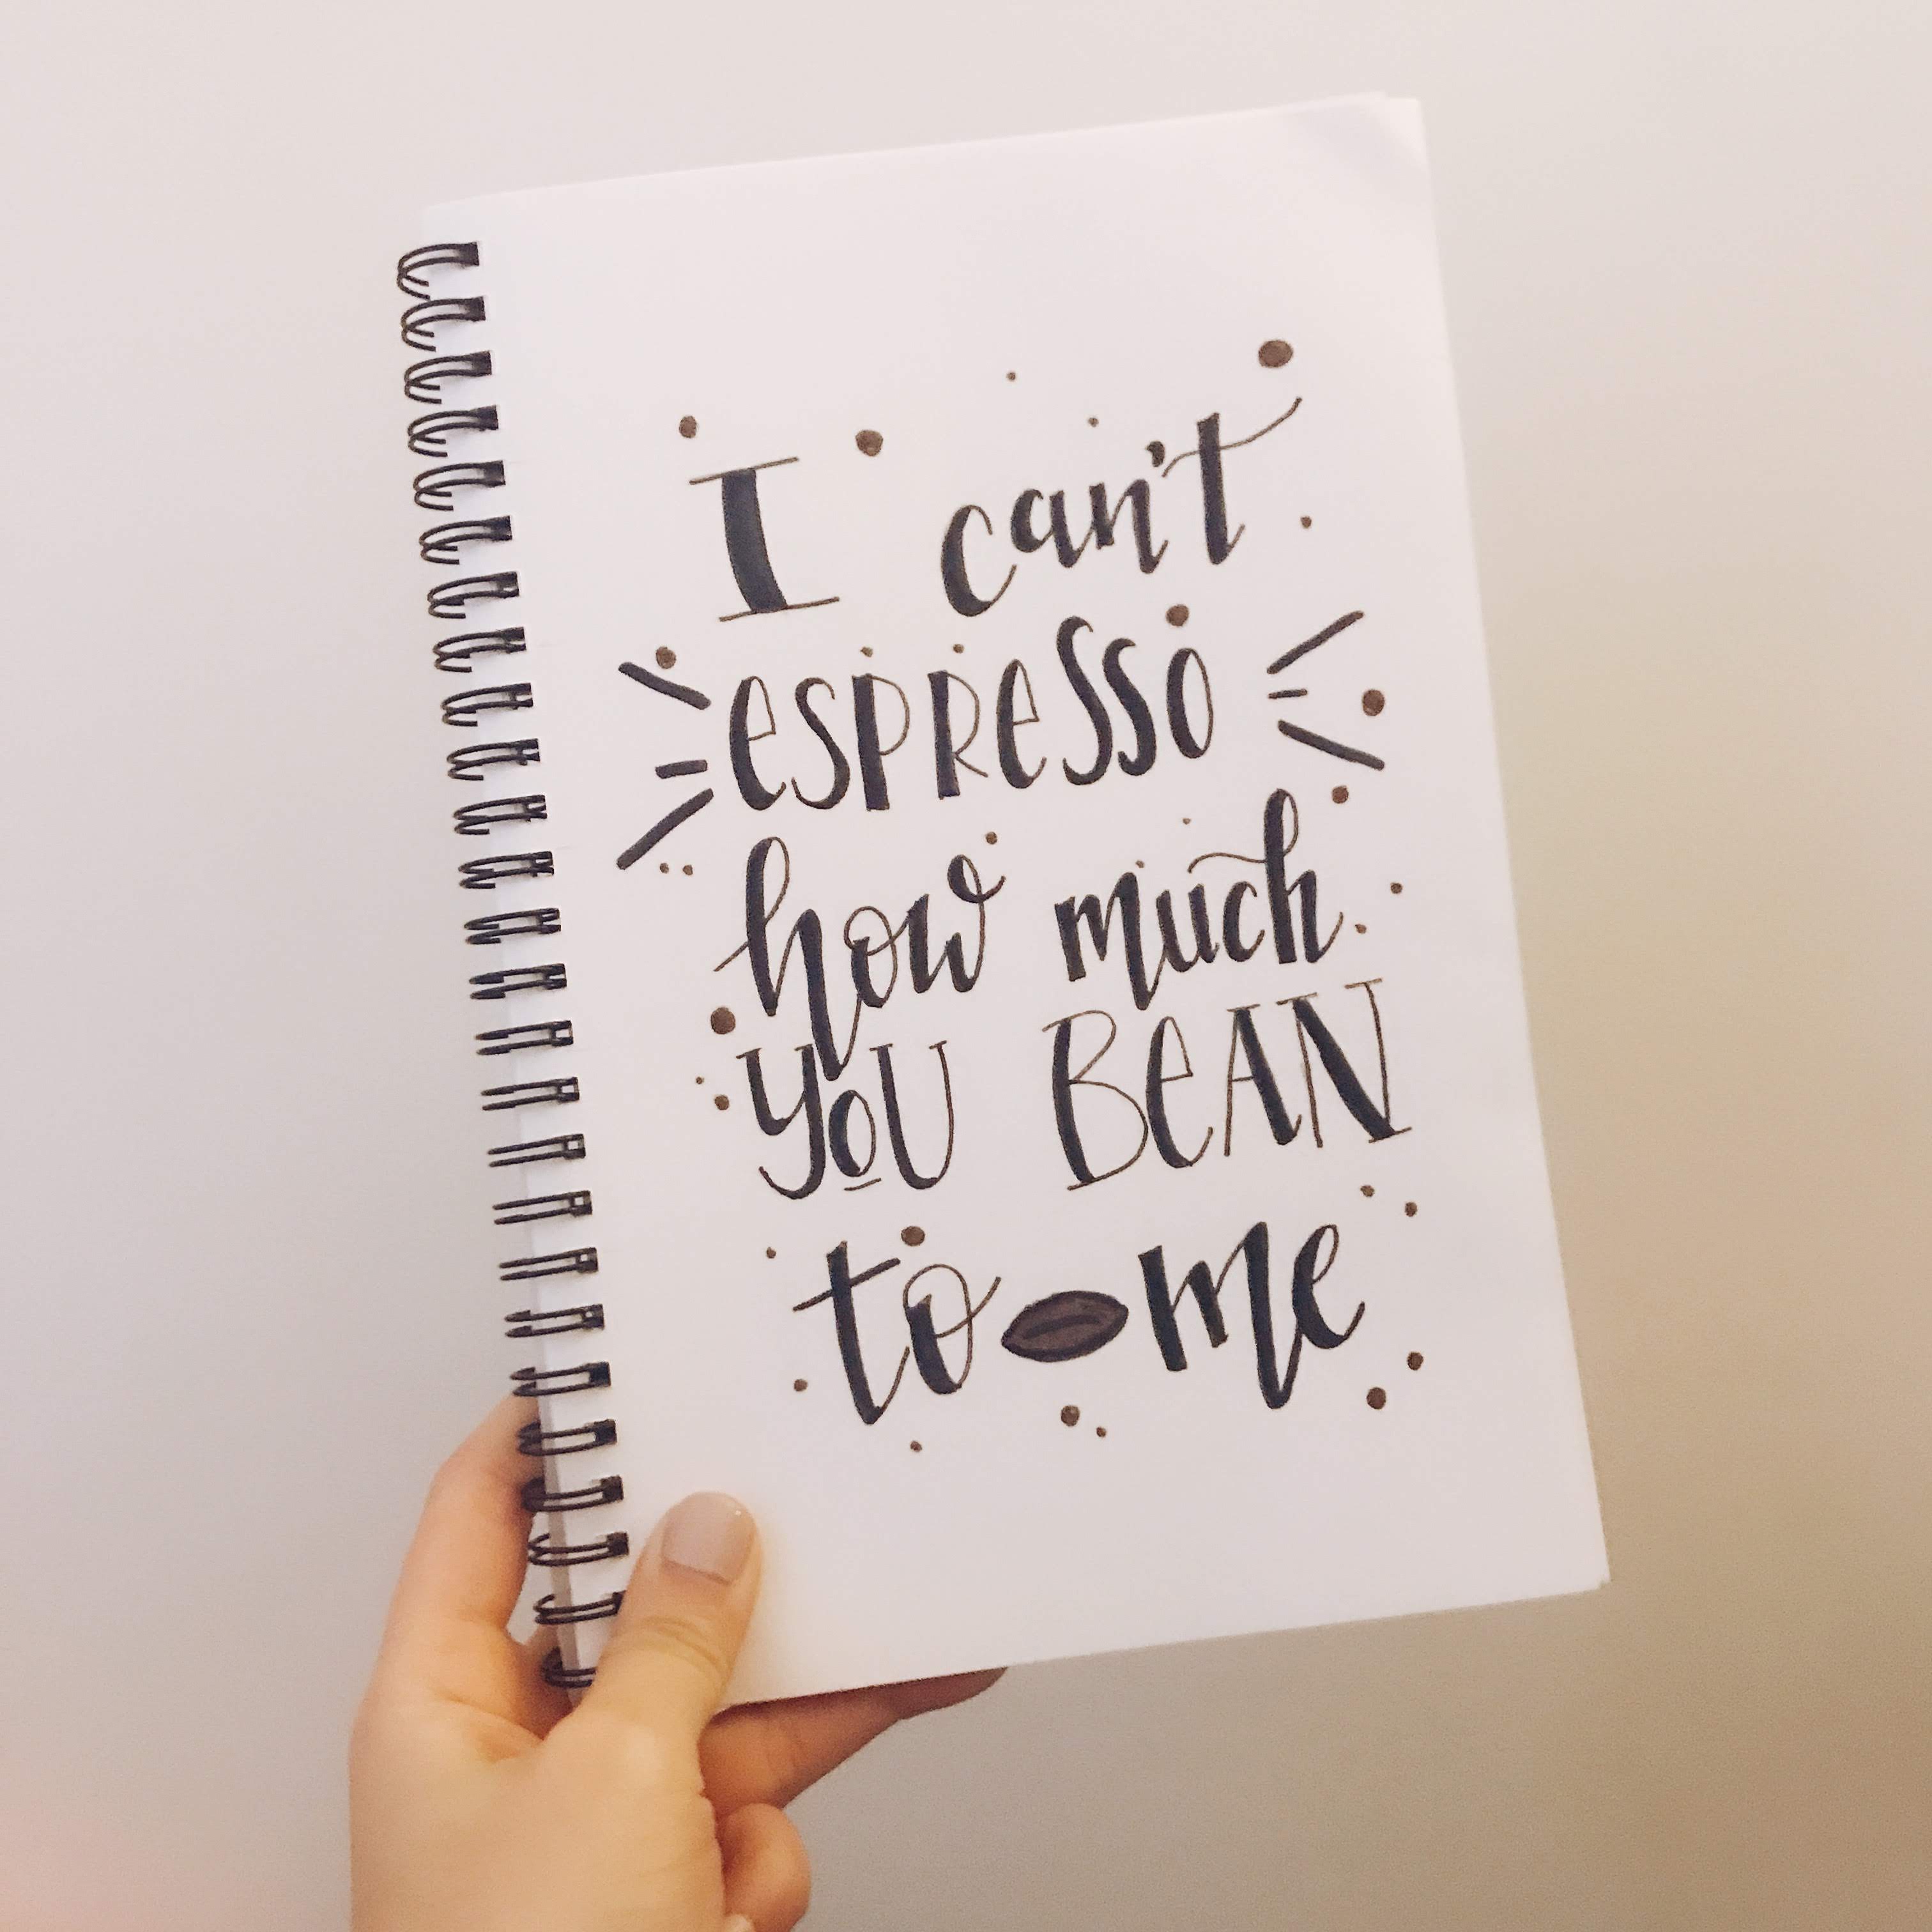 I can't
espresso
how much
you BeAN
to me